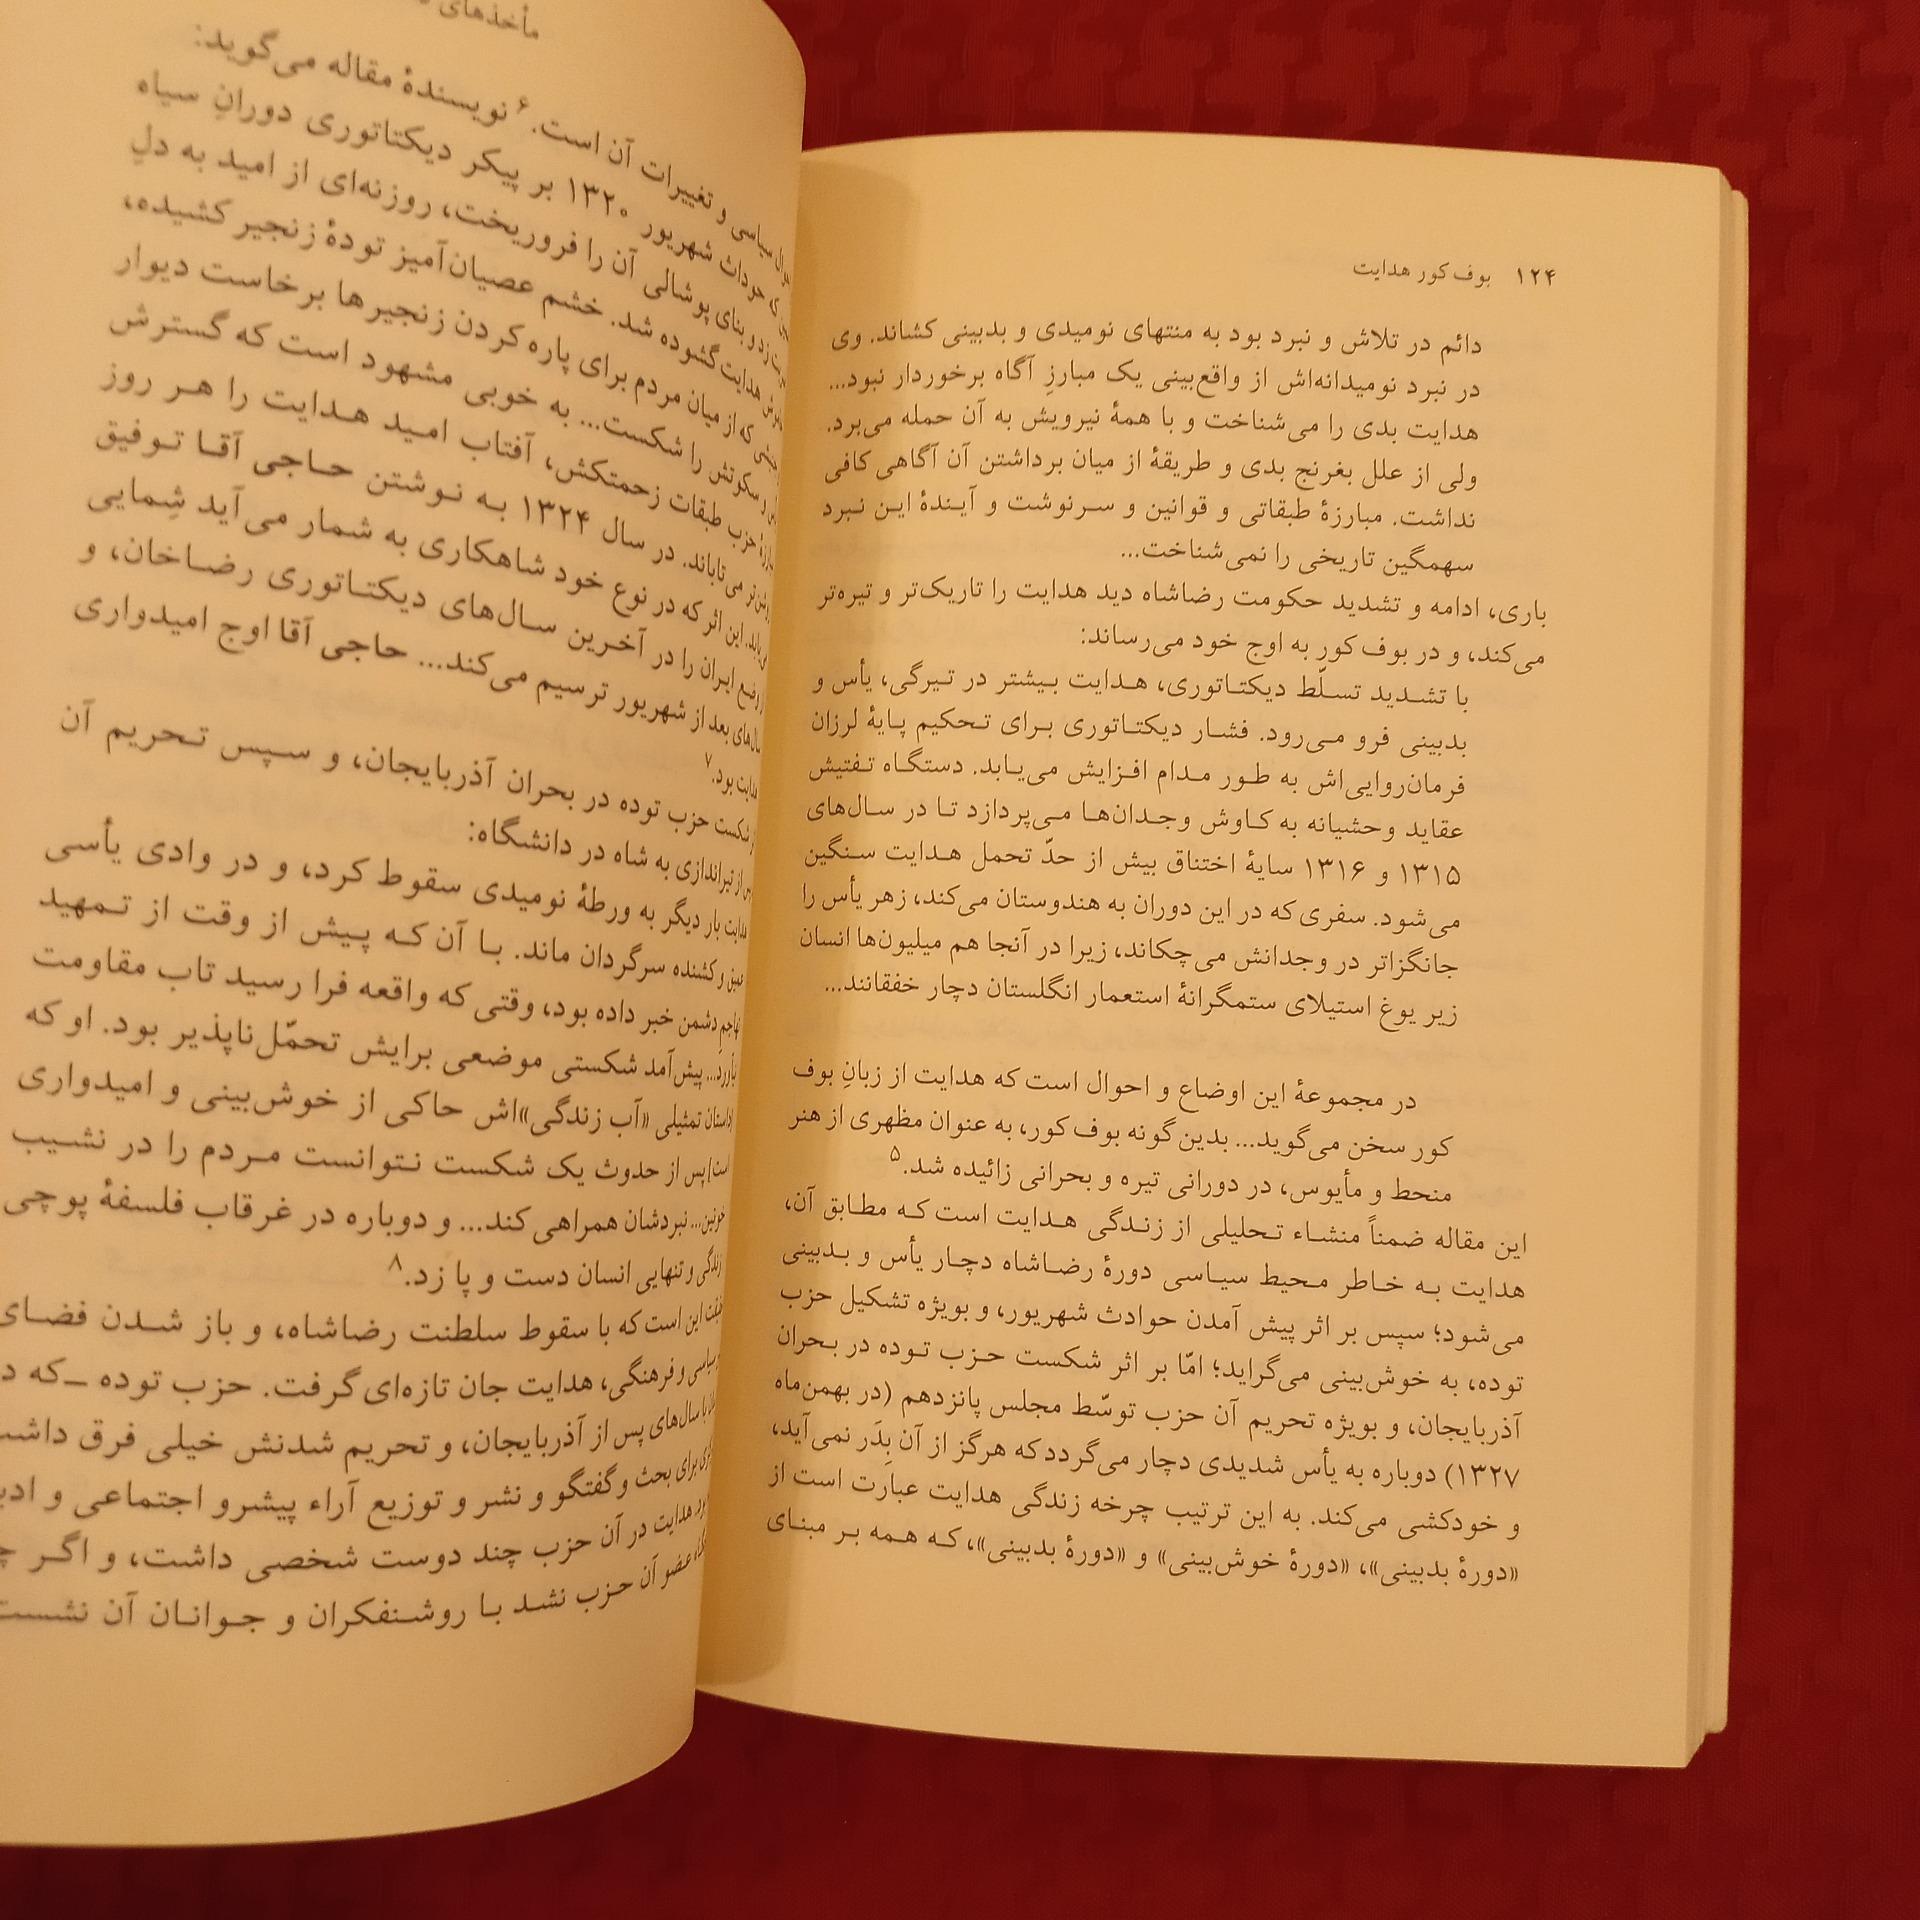 ۱۲۴ بوف کور هدایت
دائم در تلاش و نبرد بود به منتهای نومیدی و بدبینی کشاند. وی
در نبرد نومیدانه‌اش از واقع‌بینی یک مبارزِ آگاه برخوردار نبود...
هدایت بدی را می‌شناخت و با همهٔ نیرویش به آن حمله می‌برد.
ولی از علل بغرنج بدی و طریقهٔ از میان برداشتن آن آگاهی کافی
نداشت. مبارزهٔ طبقاتی و قوانین و سرنوشت و آیندهٔ این نبرد
سهمگین تاریخی را نمی‌شناخت...
باری، ادامه و تشدید حکومت رضاشاه دید هدایت را تاریک‌تر و تیره‌تر
می‌کند، و در بوف کور به اوج خود می‌رساند:
با تشدید تسلّط دیکتاتوری، هدایت بیشتر در تیرگی، یأس و
بدبینی فرو می‌رود. فشار دیکتاتوری برای تحکیم پایهٔ لرزان
فرمان‌روایی‌اش به طور مدام افزایش می‌یابد. دستگاه تفتیش
عقاید وحشیانه به کاوش وجدان‌ها می‌پردازد تا در سال‌های
۱۳۱۵ و ۱۳۱۶ سایهٔ اختناق بیش از حدّ تحمل هدایت سنگین
می‌شود. سفری که در این دوران به هندوستان می‌کند، زهر یأس را
جانگزاتر در وجدانش می‌چکاند، زیرا در آنجا هم میلیون‌ها انسان
زیر یوغ استیلای ستمگرانهٔ استعمار انگلستان دچار خفقانند...
در مجموعهٔ این اوضاع و احوال است که هدایت از زبانِ بوف
کور سخن می‌گوید... بدین‌گونه بوف کور، به عنوان مظهری از هنر
منحط و مأیوس، در دورانی تیره و بحرانی زائیده شد.۵
این مقاله ضمناً منشاء تحلیلی از زندگی هدایت است که مطابق آن،
هدایت به خاطر محیط سیاسی دورهٔ رضاشاه دچار یأس و بدبینی
می‌شود؛ سپس بر اثر پیش آمدن حوادث شهریور، و بویژه تشکیل حزب
توده، به خوش‌بینی می‌گراید؛ امّا بر اثر شکست حزب توده در بحران
آذربایجان، و بویژه تحریم آن حزب توسّط مجلس پانزدهم (در بهمن‌ماه
۱۳۲۷) دوباره به یأس شدیدی دچار می‌گردد که هرگز از آن بِدَر نمی‌آید،
و خودکشی می‌کند. به این ترتیب چرخه زندگی هدایت عبارت است از
«دورهٔ بدبینی»، «دورهٔ خوش‌بینی» و «دورهٔ بدبینی»، که همه بر مبنای
مأخذهای
سیاسی و تغییرات آن است.۶ نویسندهٔ مقاله می‌گوید:
که حوداث شهریور ۱۳۲۰ بر پیکر دیکتاتوری دورانِ سیاه
زد و بنای پوشالی آن را فروریخت، روزنه‌ای از امید به دلِ
هدایت گشوده شد. خشم عصیان‌آمیز تودهٔ زنجیر کشیده،
که از میان مردم برای پاره کردن زنجیرها برخاست دیوار
و سکوتش را شکست... به خوبی مشهود است که گسترش
حزب طبقات زحمتکش، آفتاب امید هدایت را هر روز
می‌تاباند. در سال ۱۳۲۴ به نوشتن حاجی آقا توفیق
این اثر که در نوع خود شاهکاری به شمار می‌آید شِمایی
وضع ایران را در آخرین سال‌های دیکتاتوری رضاخان، و
سال‌های بعد از شهریور ترسیم می‌کند... حاجی آقا اوج امیدواری
هدایت بود.۷
شکست حزب توده در بحران آذربایجان، و سپس تحریم آن
از تیراندازی به شاه در دانشگاه:
هدایت بار دیگر به ورطهٔ نومیدی سقوط کرد، و در وادی یأسی
عمیق و کشنده سرگردان ماند. با آن که پیش از وقت از تمهید
تهاجم دشمن خبر داده بود، وقتی که واقعه فرا رسید تاب مقاومت
نیاورد... پیش‌آمد شکستی موضعی برایش تحمّل‌ناپذیر بود. او که
داستان تمثیلی «آب زندگی»اش حاکی از خوش‌بینی و امیدواری
است] پس از حدوث یک شکست نتوانست مردم را در نشیب
خونین... نبردشان همراهی کند... و دوباره در غرقاب فلسفهٔ پوچی
زندگی و تنهایی انسان دست و پا زد.۸
این است که با سقوط سلطنت رضاشاه، و باز شدن فضای
سیاسی و فرهنگی، هدایت جان تازه‌ای گرفت. حزب توده ــ که
با سال‌های پس از آذربایجان، و تحریم شدنش خیلی فرق
برای بحث و گفتگو و نشر و توزیع آراء پیشرو اجتماعی و
هدایت در آن حزب چند دوست شخصی داشت، و اگر
عضو آن حزب نشد با روشنفکران و جوانان آن